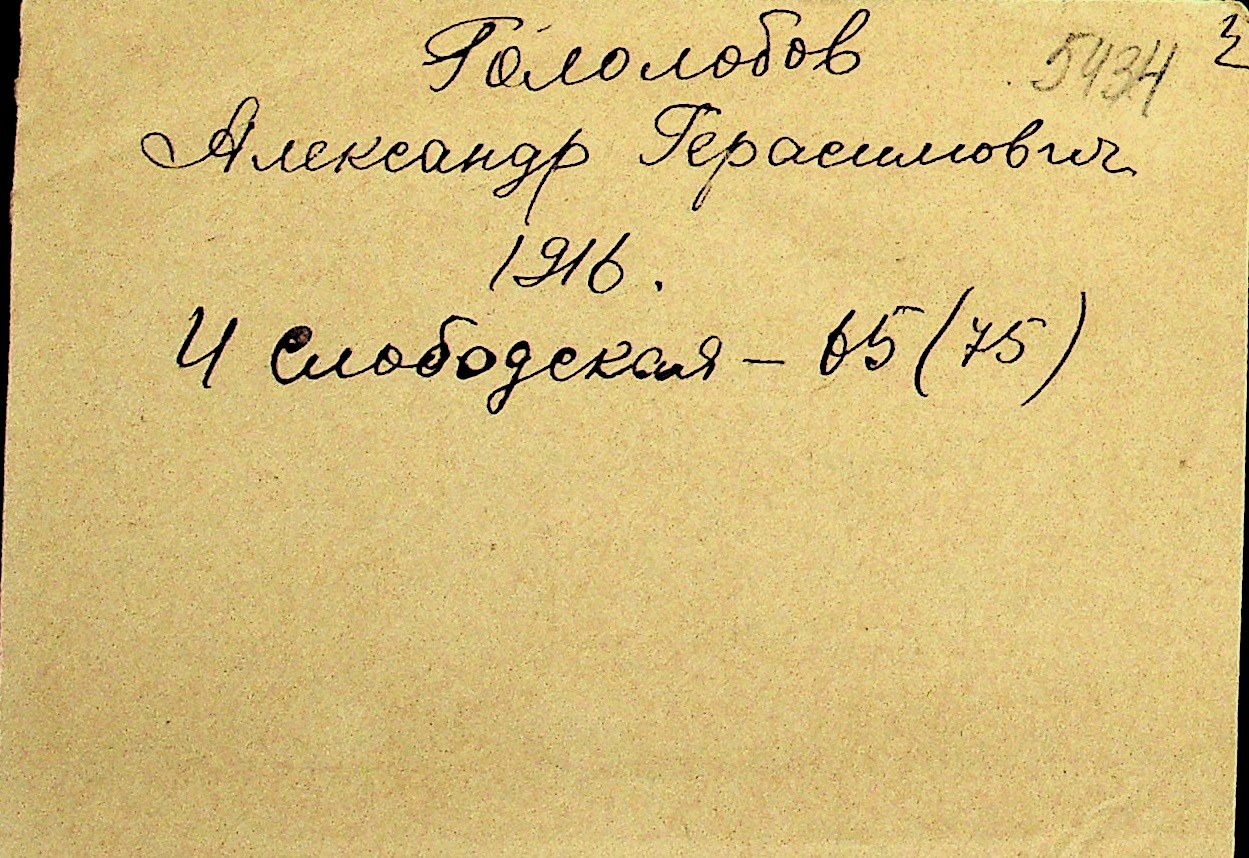 Гололобов 5434
Александр Герасимович
1916.
4 Слободская – 65 (75)